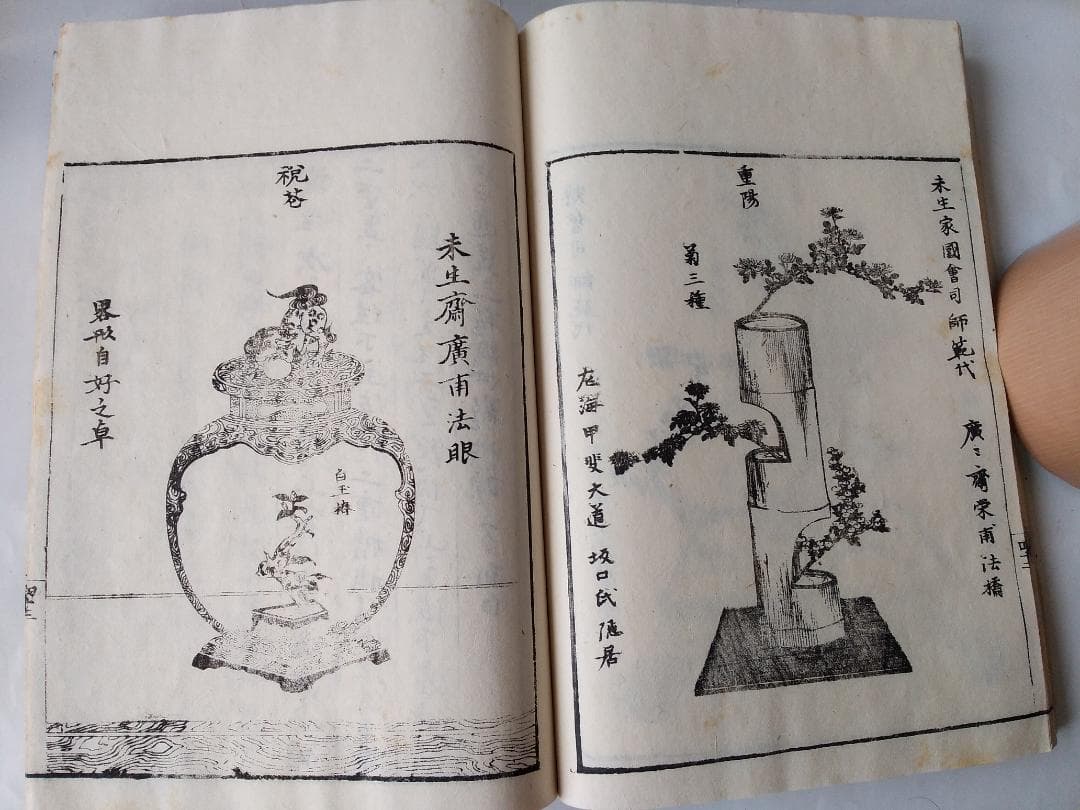 未生家國會司師範代
廣〻齋栄甫法橋
重陽
菊三種
在海甲斐大道 坂口氏隠居
未生齋廣甫法眼
祝苍
白玉椿
畧形自好之卓